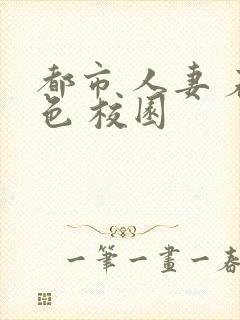 都市 人妻 
色 校园
一筆一畫一春